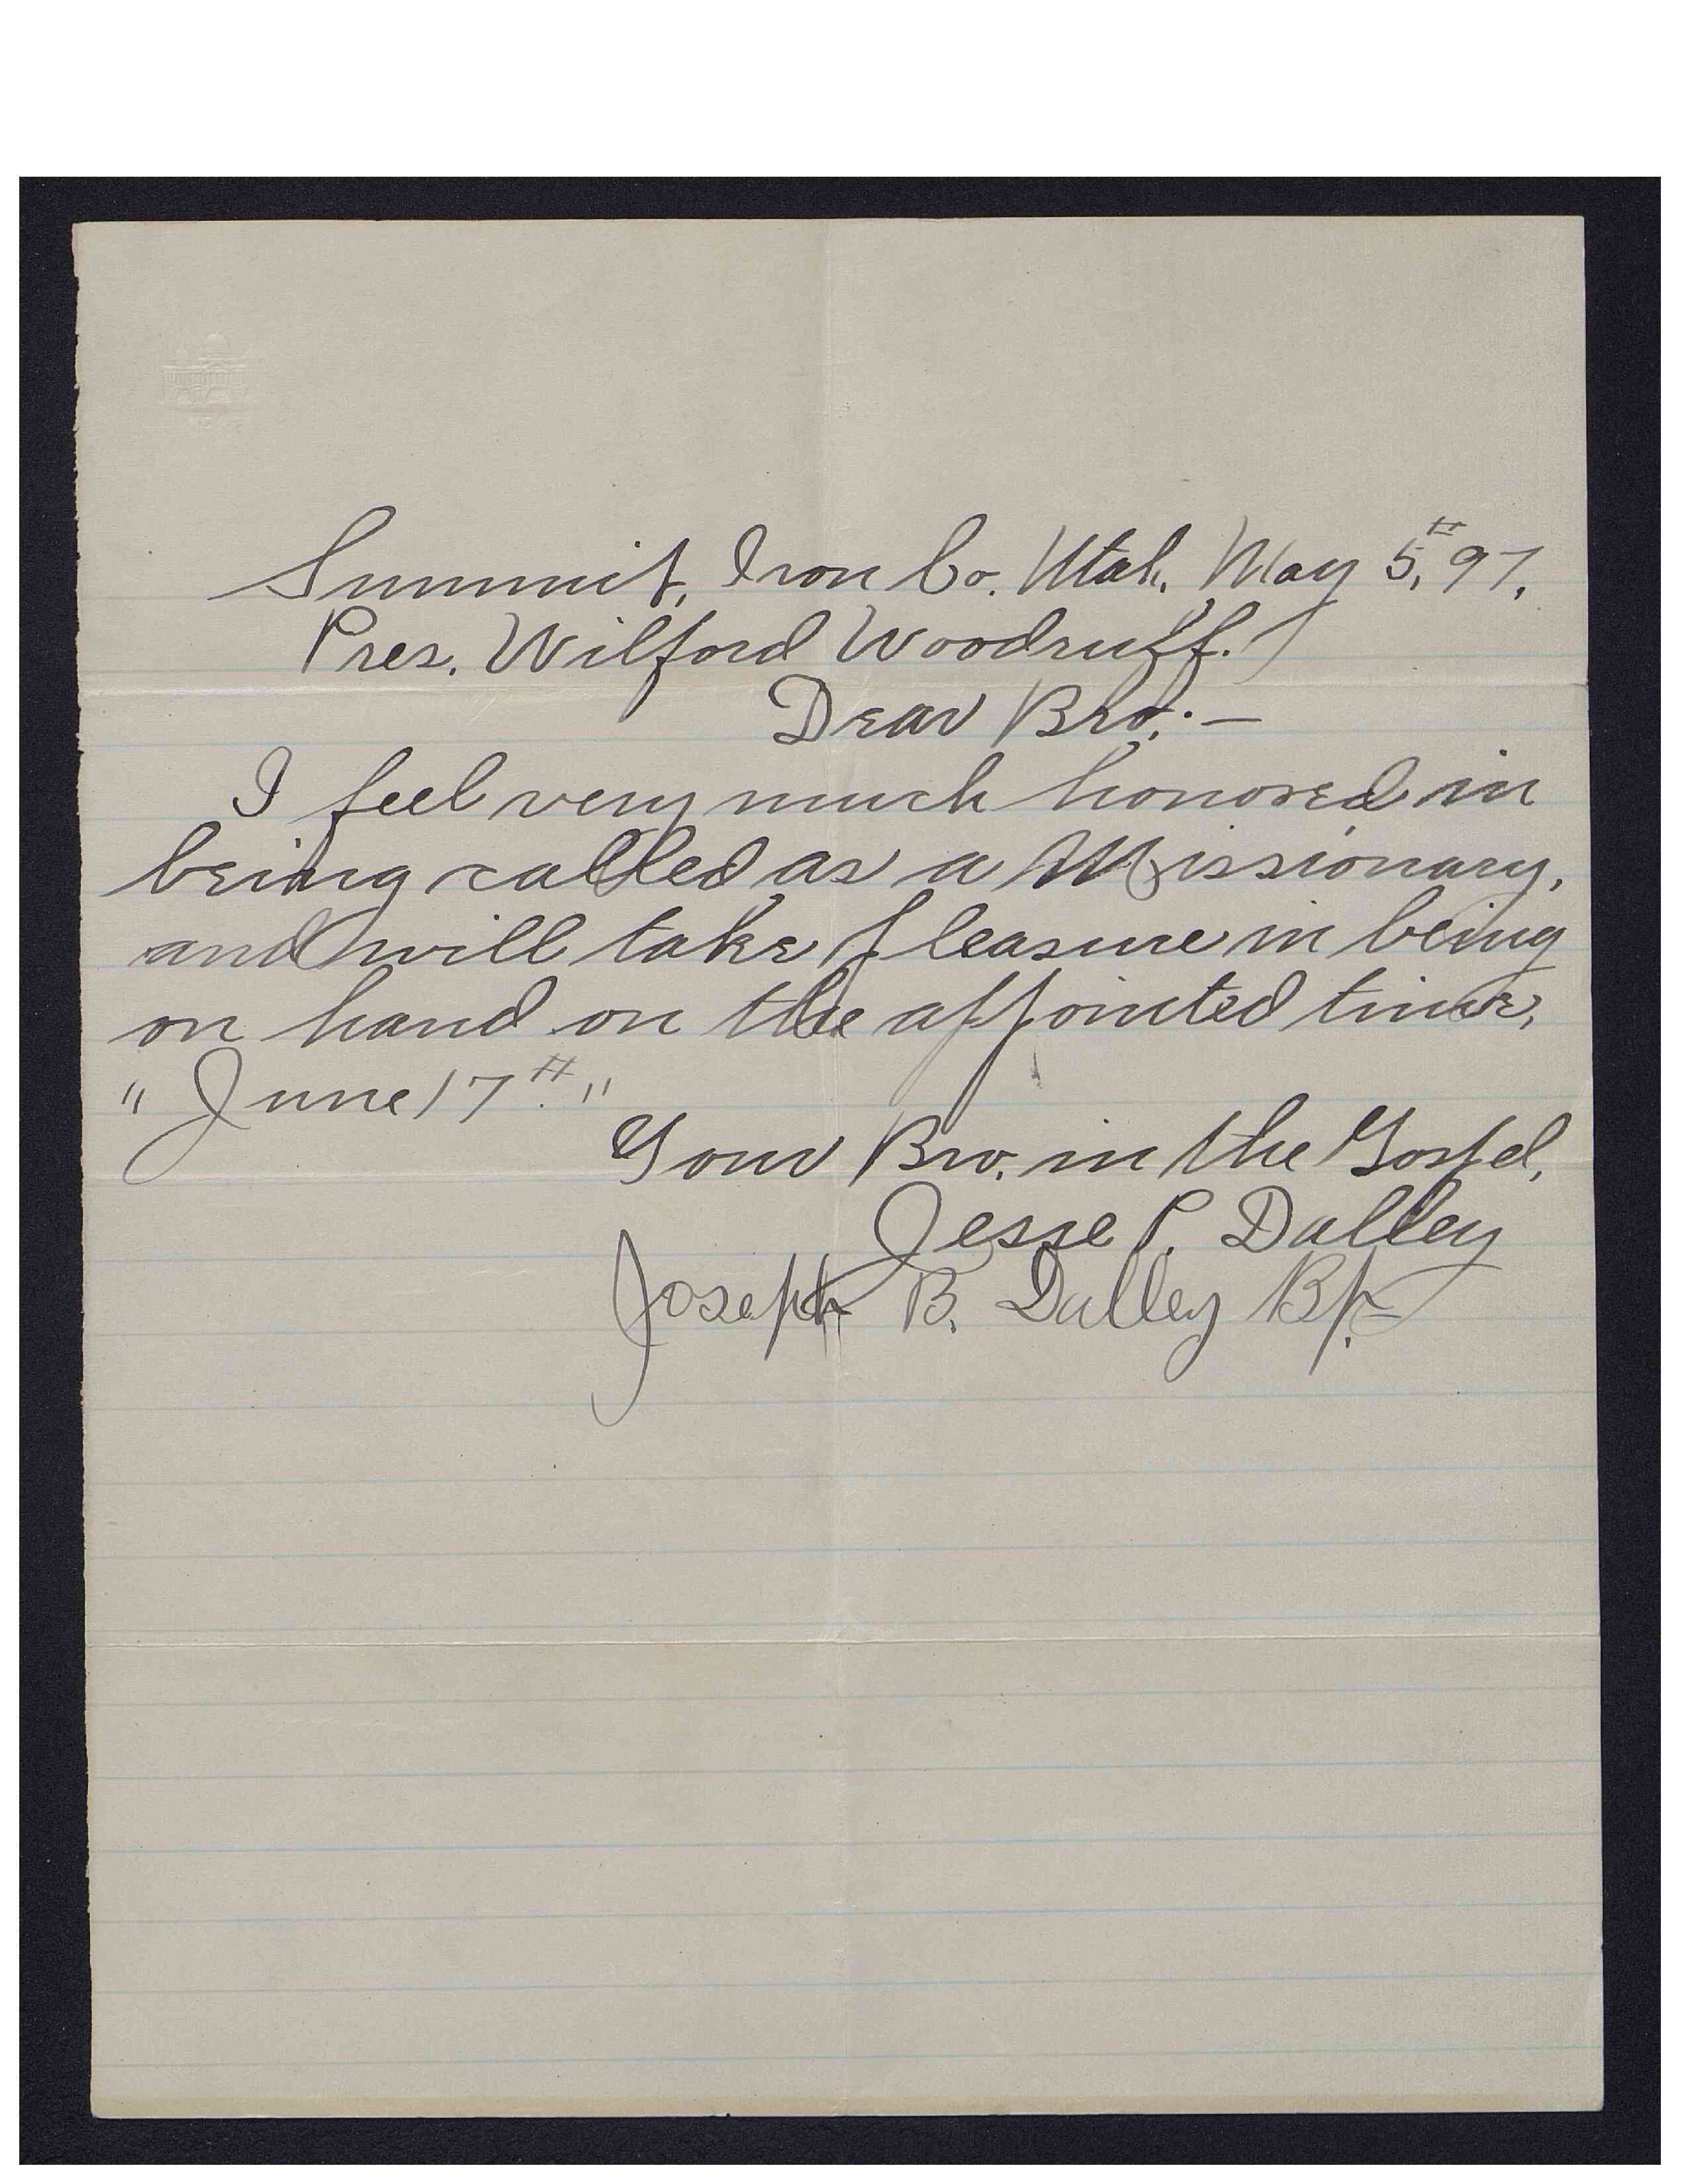 Summit, Iron Co. Utah. May 5,th 97.
Pres. Wilford Woodruff.
Dear Bro:—
I feel very much honored in
being called as a Missionary,
and will take pleasure in being
on hand on the appointed time,
"June 17th."
Your Bro. in the Gospel,
Jesse P. Dalley
Joseph B. Dalley Bp.